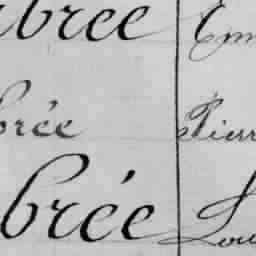 brée Em
brée Pierr
brée Lou